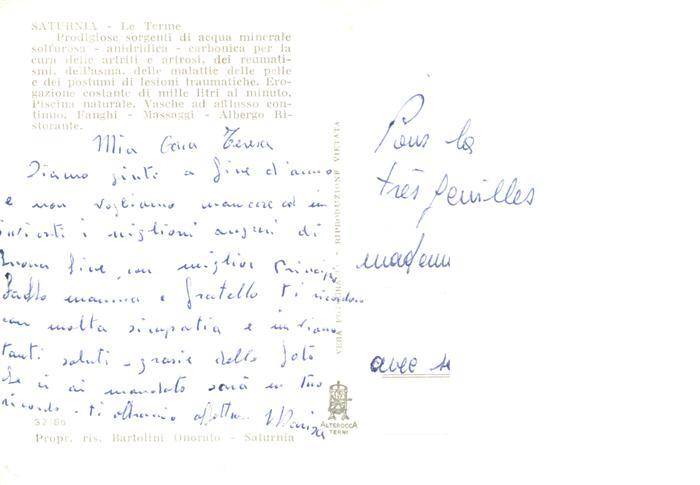 SATURNIA - Le Terme
Prodigiose sorgenti di acqua minerale
solfurosa - anidridica - carbonica per la
cura delle artriti e artrosi, dei reumati-
smi, dell'asma, delle malattie delle pelle
e dei postumi di lesioni traumatiche. Ero-
gazione costante di mille litri al minuto.
Piscina naturale. Vasche ad afflusso con-
tinuo. Fanghi - Massaggi - Albergo Ri-
storante.
Mia Cara Teresa
Siamo giunti a fine d'anno
e non vogliamo mancare ad in
viarti i migliori auguri di
buona fine, con miglior Principio
Paolo mamma e fratello ti ricordano
con molta simpatia e inviano
tanti saluti - grazie della foto
che ci ai mandato sarà un tuo
ricordo - ti
Marisa
32.86
Propr. ris. Bartolini Onorato - Saturnia
RIPRODUZIONE VIETATA
VERA
ALTEROCCA
TERNI
Pour la
très gentilles
madam
avec